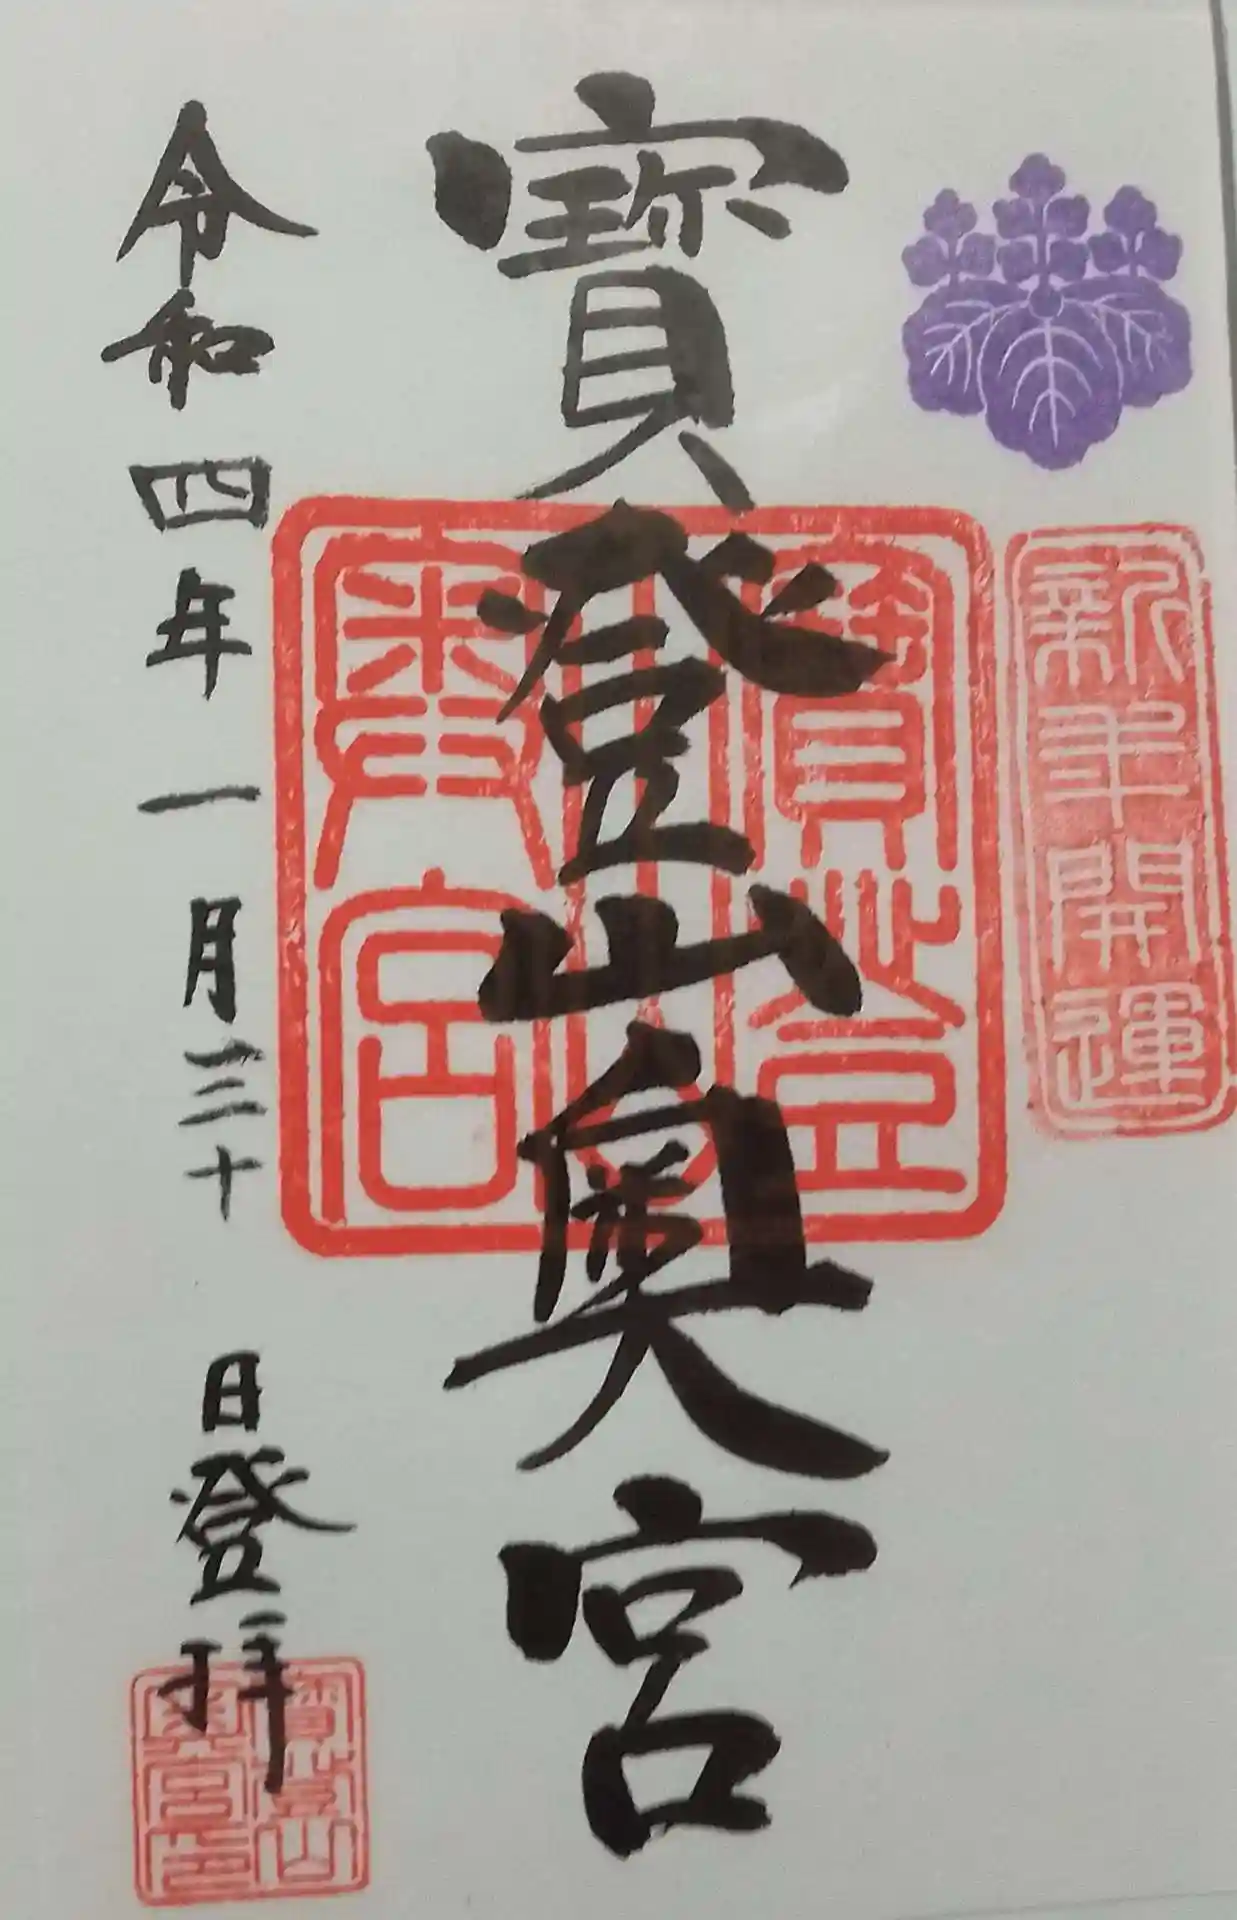 新年開運
寶登山奥宮
寶登山奥宮
令和四年一月三十日登拝
寶登山奥宮印